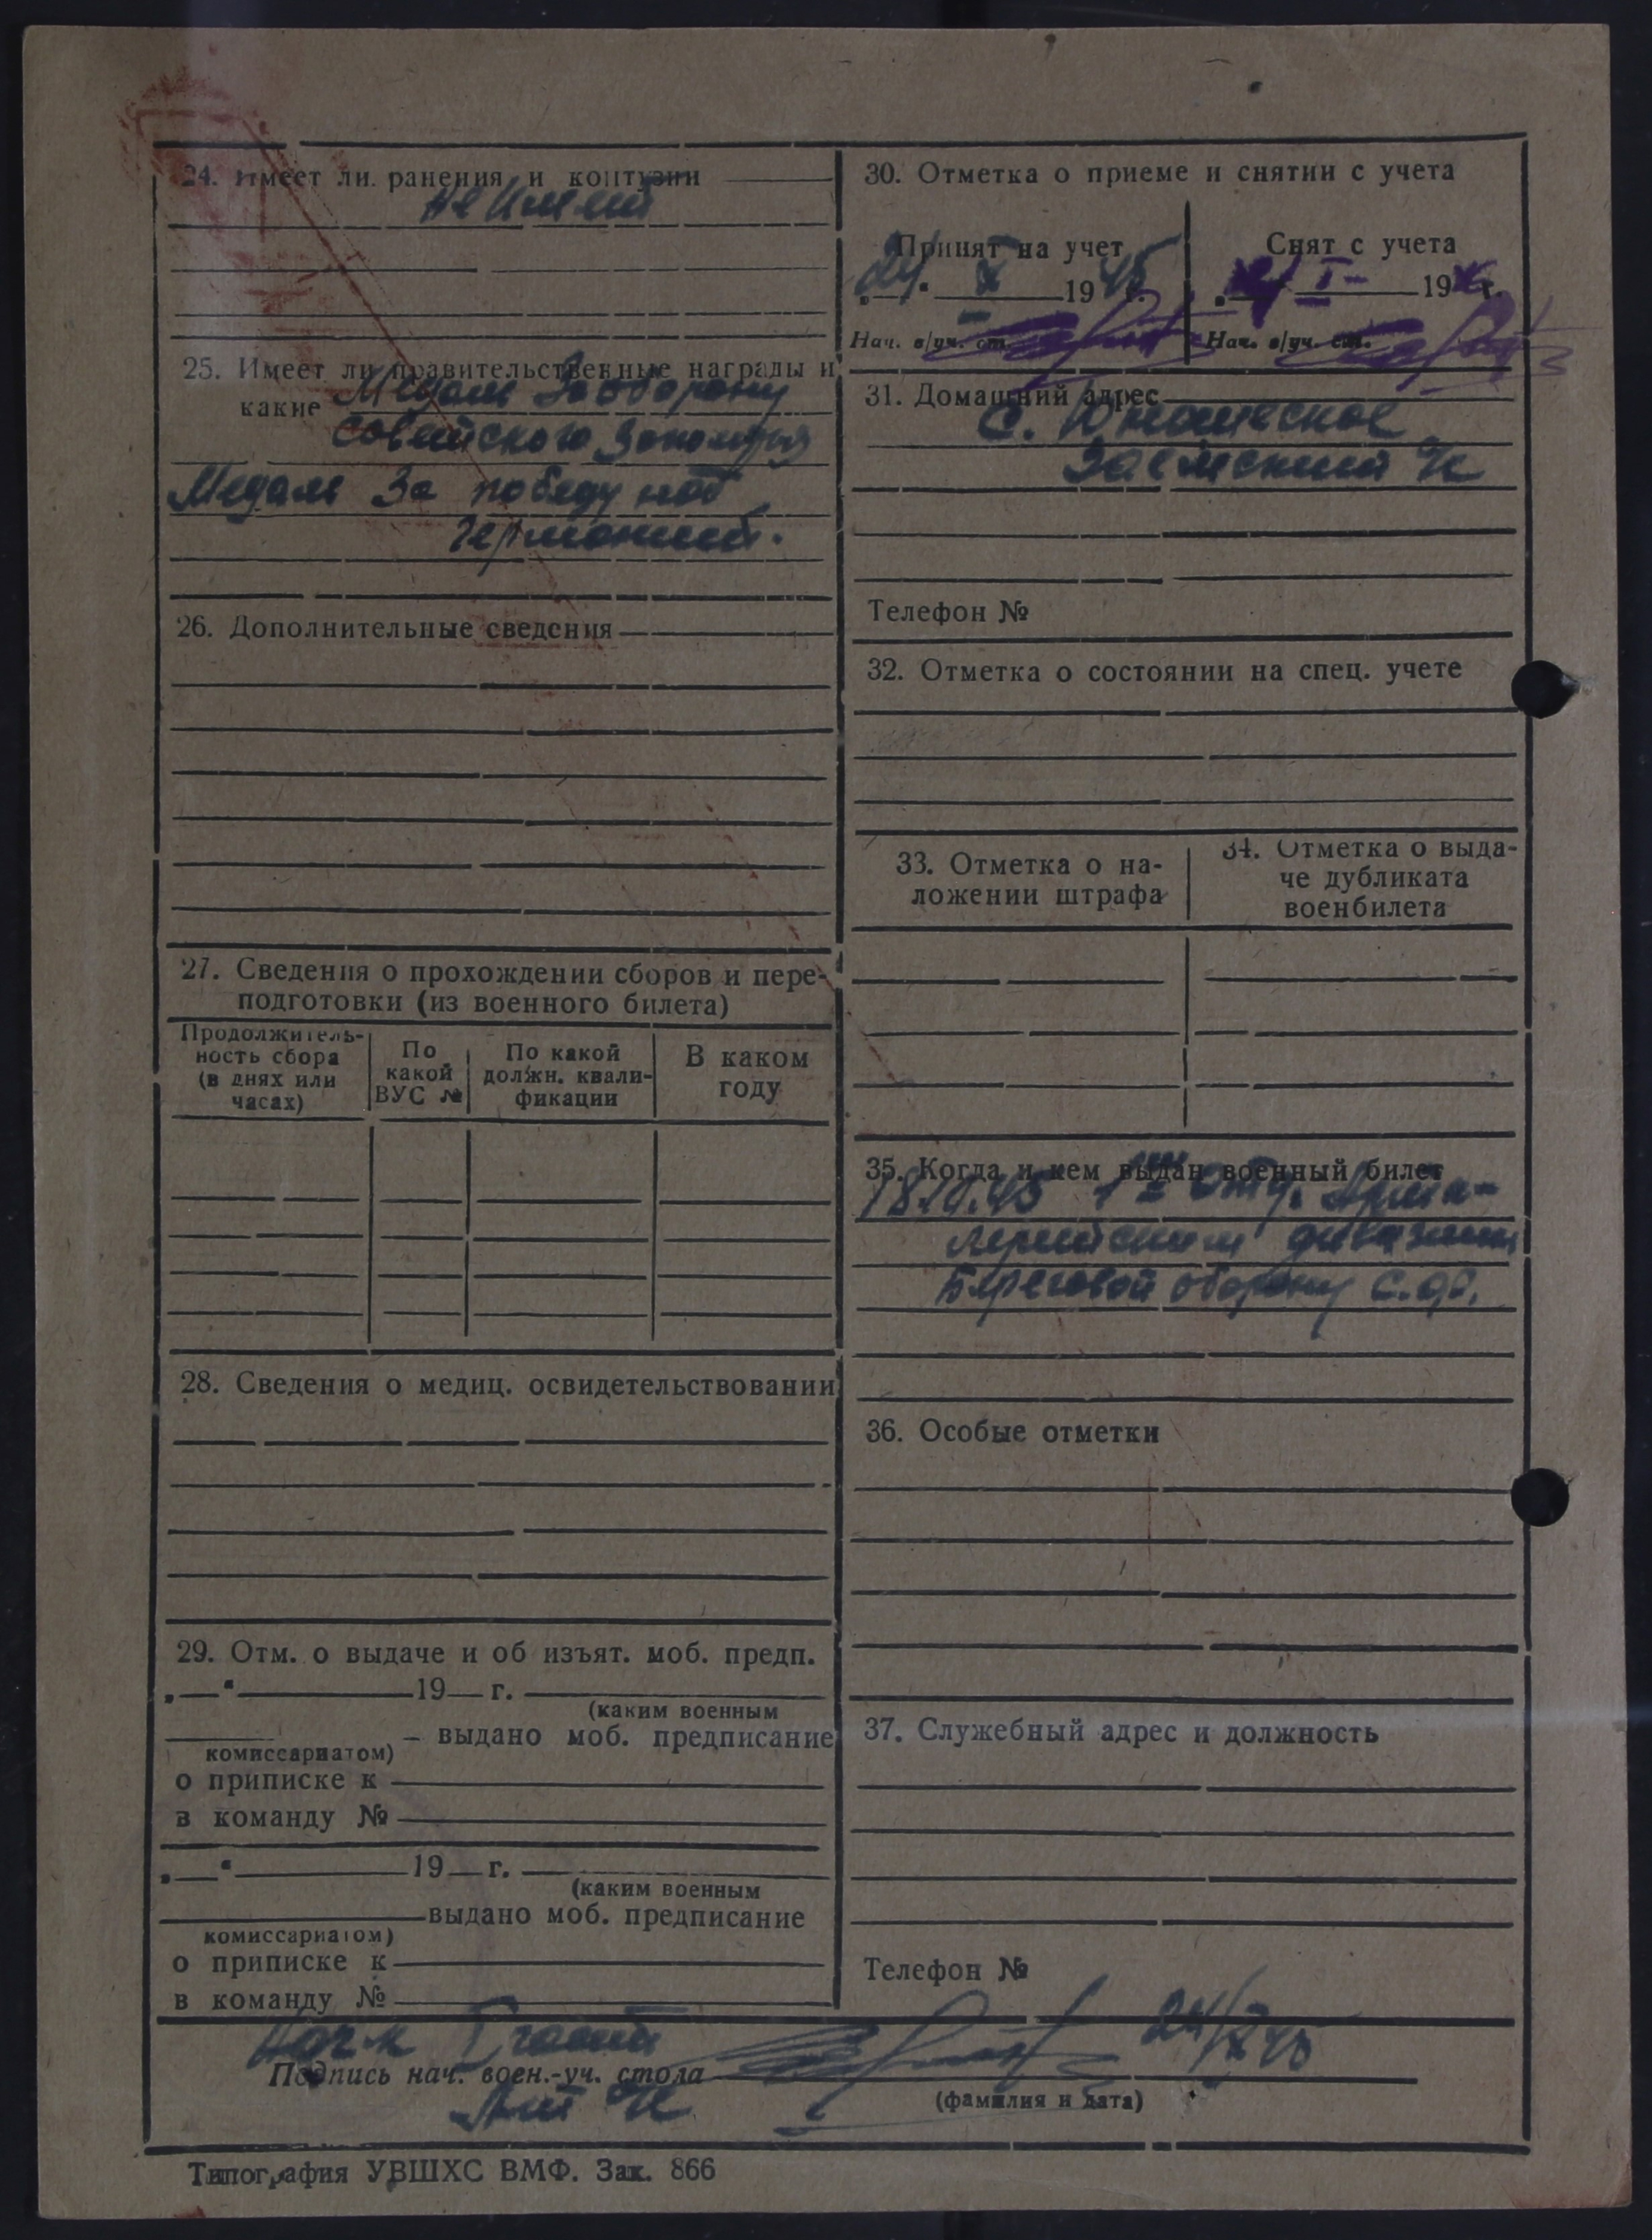 24. Имеет ли ранения и контузии
не имеет
25. Имеет ли правительственные награды и
какие Медаль За оборону
Советского Заполярья
Медаль За победу над
Германией.
26. Дополнительные сведения
27. Сведения о прохождении сборов и пере-
подготовки (из военного билета)
Продолжитель-
ность сбора
(в днях или
часах)
По
какой
ВУС №
По какой
должн. квали-
фикации
В каком
году
28. Сведения о медиц. освидетельствовании
29. Отм. о выдаче и об изъят. моб. предп.
„—“ 19— г.
(каким военным
– выдано моб. предписание
комиссариатом)
о приписке к
в команду №
„—“ 19— г.
(каким военным
выдано моб. предписание
комиссариатом)
о приписке к
в команду №
30. Отметка о приеме и снятии с учета
Принят на учет
„24“ X 1945 г.
Нач. в/уч. ст.
Снят с учета
I 19 г.
Нач. в/уч. ст.
31. Домашний адрес
с.
с/с
Телефон №
32. Отметка о состоянии на спец. учете
33. Отметка о на-
ложении штрафа
34. Отметка о выда-
че дубликата
военбилета
35. Когда и кем выдан военный билет
18.10.45 1м Отд. Арти-
лерийским дивизион
Береговой обороны С.Ф.
36. Особые отметки
37. Служебный адрес и должность
Телефон №
Нач-к
24/X 45
Подпись нач. воен.-уч. стола
(фамилия и дата)
Типография УВШХС ВМФ. Зак. 866